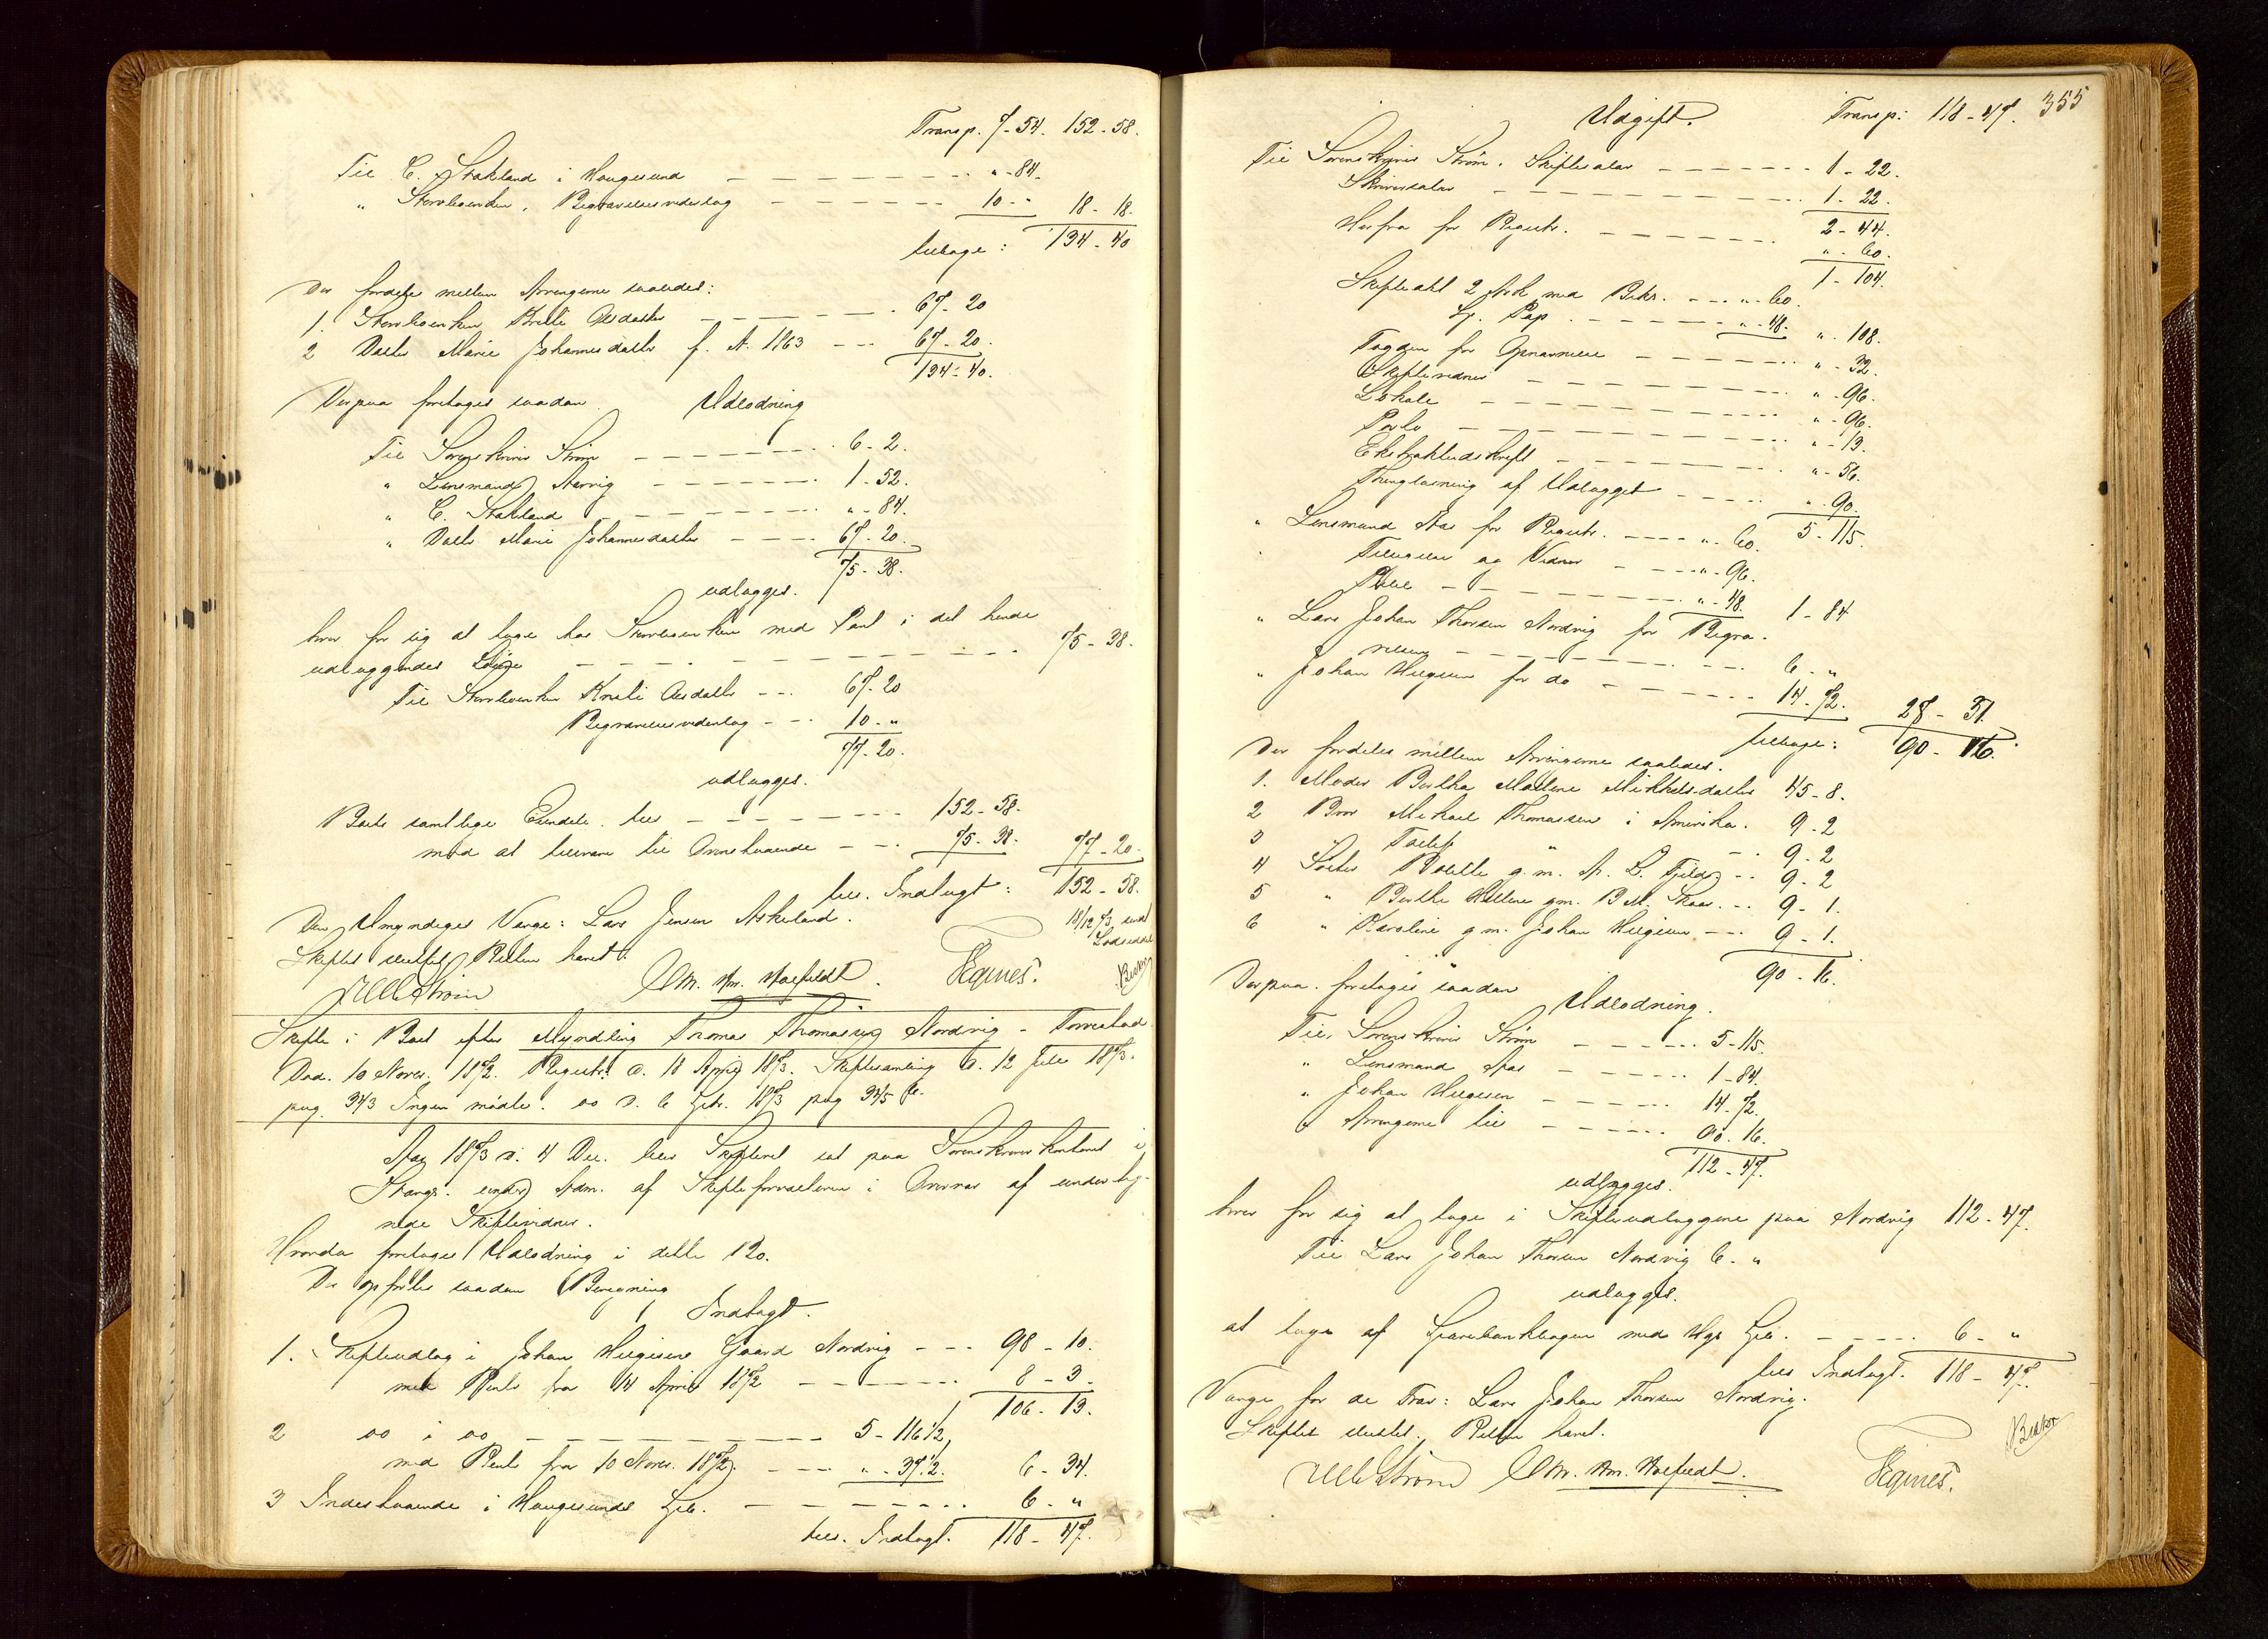 Transp. 7-54. 152-58.
Til C. Stakland i Haugesund - - - " - 84.
" Stervboenken, Begravelsesvederlag - - - 10 - " 18-18.
tilbage: 134-40
Der fordeles mellem Arvingerne saaledes:
1. Stervboenken Kristi Olsdatter - - - 67-20
2 Datter Marie Johannesdatter f. A. 1863 - - - 67-20.
134-40.
Derpaa foretoges saadan Udlodning
Til Sorenskriver Strøm - - - 6-2.
" Lensmand - - - 1-52.
" C. Stakland - - - " - 84.
" Datter Marie Johannesdatter - - - 67-20.
75-38.
udlægges.
hver for sig at tage hos Stervboenken med Pant i det hende
udlæggendes Løsøre - - - 75-38.
Til Stervboenken Kristi Olsdatter - - - 67-20
Begravelsesvederlag - - - 10-"
77-20.
udlægges.
Boets samtlige Eiendele til - - - 152-58.
mod at tilsvare til Ovenstaaende - - - 75-38. 77-20.
tils. Indtægt: 152-58.
Den Umyndiges Værge: Lars Jensen Askeland.
18/12 73 sendt
Lodseddel
Skiftet sluttet, Retten hævet.
Strøm
Skifte i Boet efter Myndling Thomas Thomassen Nordvig - Torvestad
Død. 10 Novbr. 1872. Registr. d. 18 April 1873. Skiftesamling d. 12 Juli 1873.
pag. 343 Ingen mødte. do d. 6 1873 pag 345
Aar 1873 d. 4 Dec. blev Skifteret sat paa Sorenskriverkontoret i
Stange. under Adm. af Skifteforvalteren i Overvær af underteg-
nede Skiftevidner.
Hvorda foretoges Udlodning i dette Bo.
Der opførtes saadan Beregning
Indtægt.
1. Skifteudlæg i Johan Helgesens Gaard Nordvig - - - 98-10.
med Rente fra 14 April 1872 - - - 8-3.
106-13.
2 do i do - - - 5-116 1/2
med Rente fra 10 Novbr. 1872 - - - " - 37 1/2. 6-34.
3 Indestaaende i Haugesunds - - - 6-"
tils. Indtægt. 118-47.
355
Udgift. Transp: 118-47.
Til Sorenskriver Strøm. Skiftesalær - - - 1-22.
Skriversalær - - - 1-22.
2-44.
Herfra for Registr. - - - " - 60.
1-104.
Skifteakt 2 Ark med Bekr. - - - " - 60.
St. Pap. - - - " - 48. " - 108.
Taxten for Opnævnelse - - - " - 32.
Skiftevidner - - - " - 96.
Lokale - - - " - 96.
Porto - - - " - 13.
Ekstraktudskrift - - - " - 56.
Thinglæsning af Udlægget - - - " - 90.
5-115.
" Lensmand Aas for Registr. - - - " - 60.
Tilsigelse og Vidner - - - " - 96.
- - - " - 48. 1-84
" Lars Johan Thorsen Nordvig for Begra-
velsen - - - 6-"
" Johan Helgesen for do - - - 14-72. 28-31.
tilbage: 90-16.
Der fordeles mellem Arvingerne saaledes.
1. Moder Bertha Malene Mikkelsdatter 45-8.
2 Bror Mikael Thomassen i Amerika. 9-2
3 " " - - 9-2
4 Søster g. m. A. L. Fjeld - - 9-2
5 " Berthe Helene gm. B. M. Skaar. - - 9-1.
6 " Karoline g m. Johan Helgesen - - - 9-1.
90-16.
Derpaa foretoges saadan Udlodning.
Til Sorenskriver Strøm - - - 5-115.
" Lensmand Aas - - - 1-84.
" Johan Helgesen - - - 14-72.
" Arvingerne til - - - 90-16.
112-47.
udlægges.
hver for sig at tage i Skifteudlæggene paa Nordvig 112-47.
Til Lars Johan Thorsen Nordvig 6-"
udlægges.
at tage af Sparebankbogen med - - - 6-"
tils Indtægt. 118-47.
Værge for de Frav: Lars Johan Thorsen Nordvig.
Skiftet sluttet. Retten hævet.
Strøm